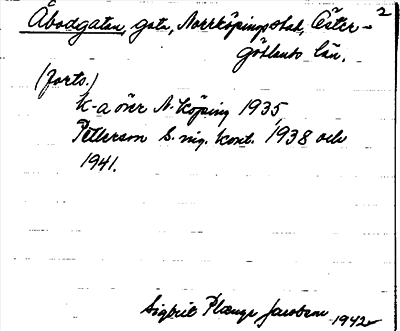 2
Åbodgatan, gata, Norrköpings stad, Öster-
götlands län.
(forts.)
K-a över N.köping 1935,
Petterson S. 1938 och
1941.
Sigbrit Plænge Jacobson 1942